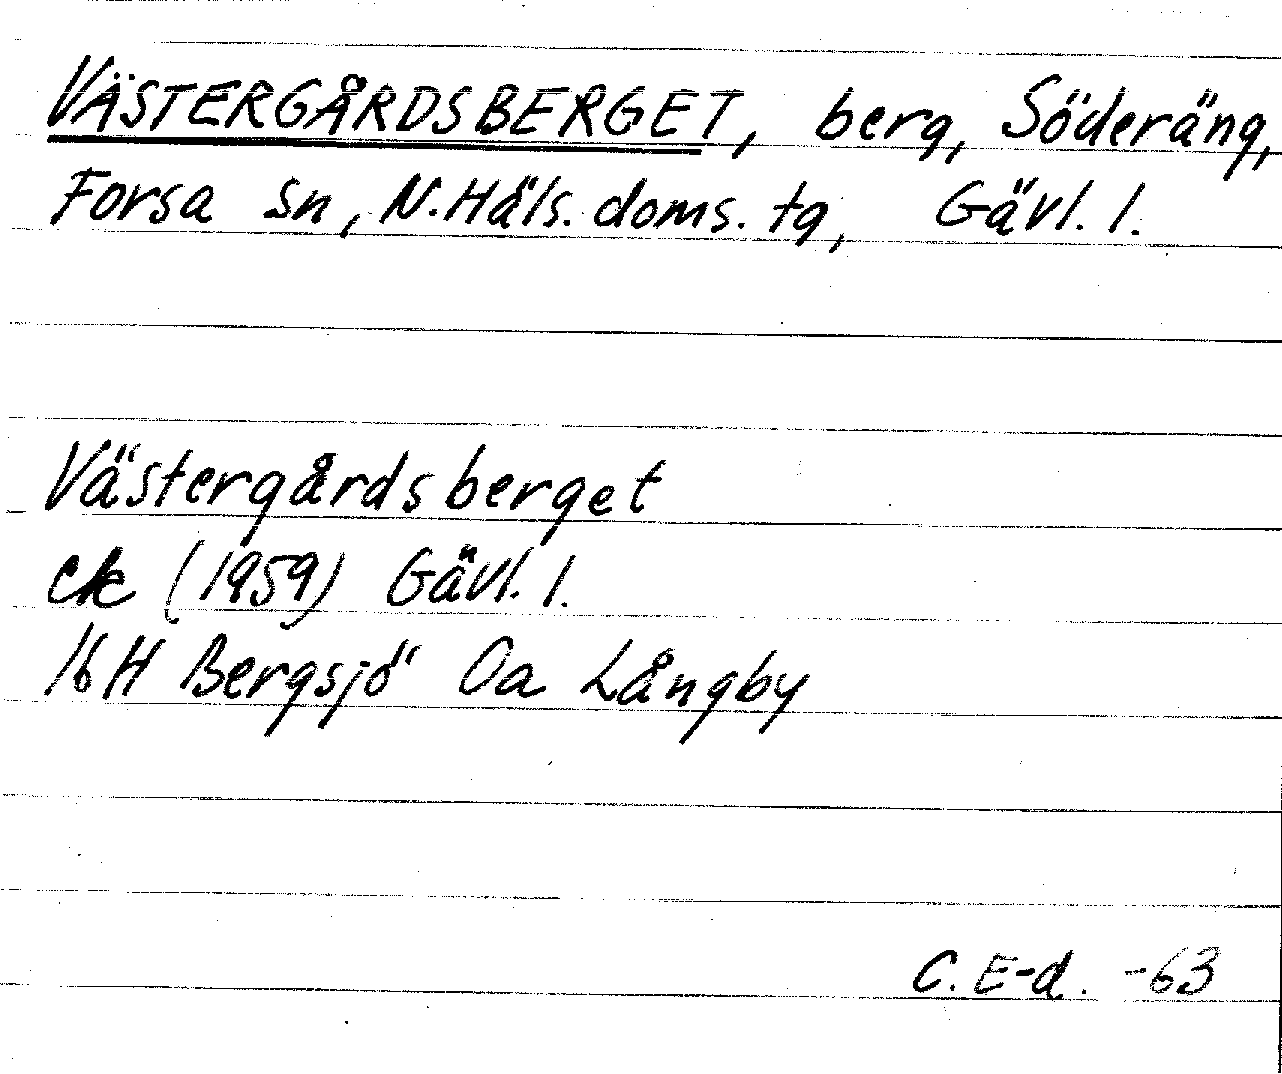 VÄSTERGÅRDSBERGET, berg, Söderäng,
Forsa sn, N.Häls. doms. tg, Gävl. l.
Västergårdsberget
ek (1959) Gävl. l.
16H Bergsjö Oa Långby
C. E-d. -63